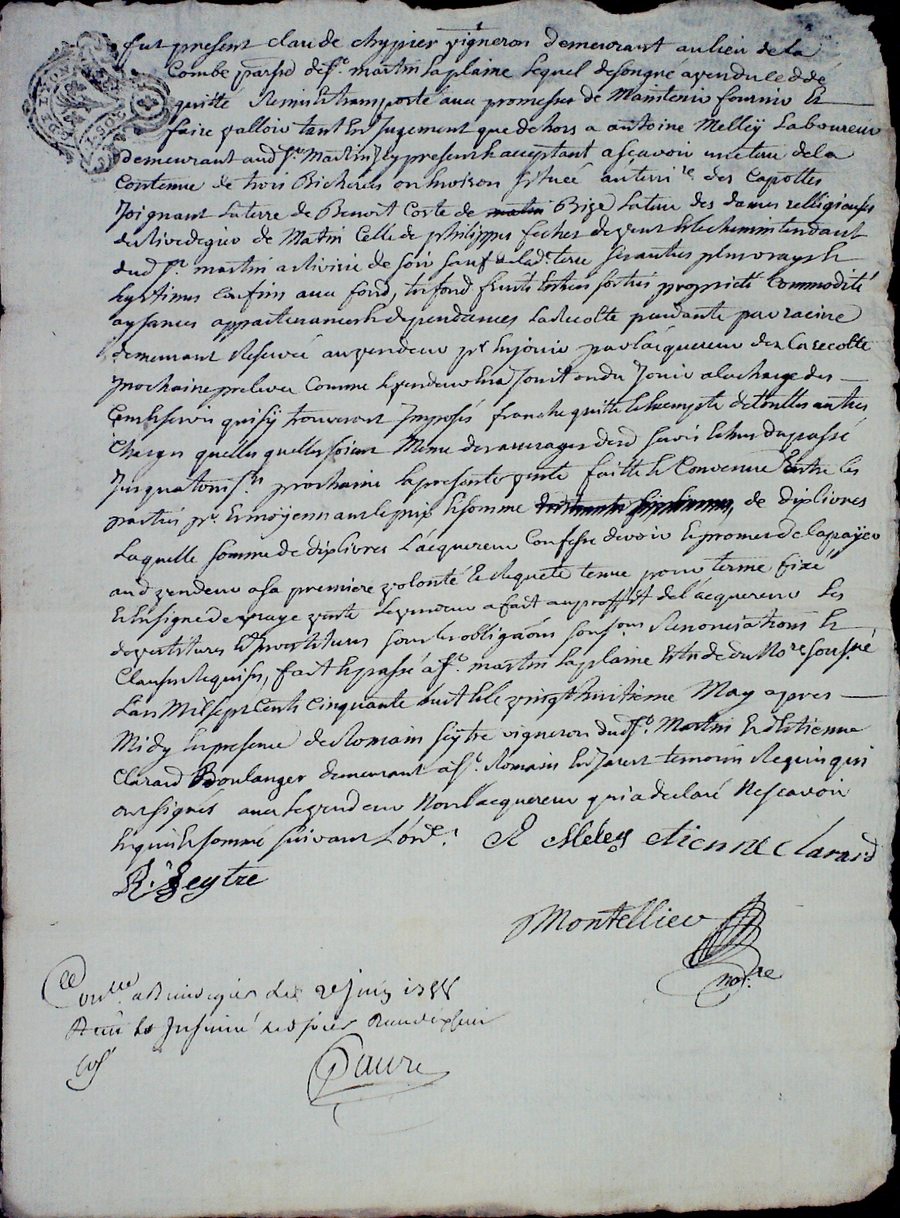 fut present claude chypier vigneron demeurant au lieu de la
Combe parsse de St. martin la plaine lequel de son gré a vendu cedé
quitté Remis et transporté aux promesses de Maintenir fournir Et
faire valloir tant En Jugement que dehors a antoine Melley Laboureur
demeurant aud St. Martin Jcy present et acceptant ascavoir une terre de la
Contenue de trois Bicherées ou Environ scituée au terrre des Capottes
Joignant la terre de Benoit Coste de Bize la terre des dames relligieuses
de Rivedegier de Matin Celle de philippes de vent Et le chemin tendant
dud St. martin a de soir sauf de lad. terre ses autres plus vrays Et
legitimes Confins aux fond, tresfond fruits Entrées sorties proprieté Commodité
aysances appartenances Et dependances la Recolte pendante par racine
demeurant Reservée au vendeur pr. En jouir par l'acquereur dez la recolte
prochaine prelevée Comme le vendeur En a Jouit ou du Jouir a la charge des
Cens Et servis qui s'y trouveront Jmposés franche quitte Et Exempte de touttes autres
Charges quelles quelles soient Meme des arrerages desd servis Echus du passé
Jusqua tous sts prochaine la presente vente faitte Et Convenue Entre les
parties pr. Et moyennant le prix Et somme de dix livres
Laquelle somme de dix livres L'acquereur Confesse devoir Et promet de la payer
aud vendeur a sa premiere volonté Et Requete tenue pour terme fixé
Et En signe de vraye vente le vendeur a fait au proffit de l'acquereur les
devestitures Et Jnvestitures sous les obligaons soumons Renonciations Et
Clauses Requises, fait Et passé a St. martin la plaine Etude du Nore soussné
Lan Mil sept Cents Cinquante huit Et le vingt huitieme May apres
Midy En presence de Romain seytre vigneron dud St. Martin Et d'Etienne
Clarard Boulanger demeurant a St. Romain En Jarest temoins Requis qui
ont signés avec le vendeur Non l'acquereur qui a declaré Ne scavoir
Enquis Et sommé suivant L'orde.
A Meley etienne Clarard
R. Seytre
Montellier
nore
Conlle. a Rivedegier le 2e juin 1758
Reçu
Faure